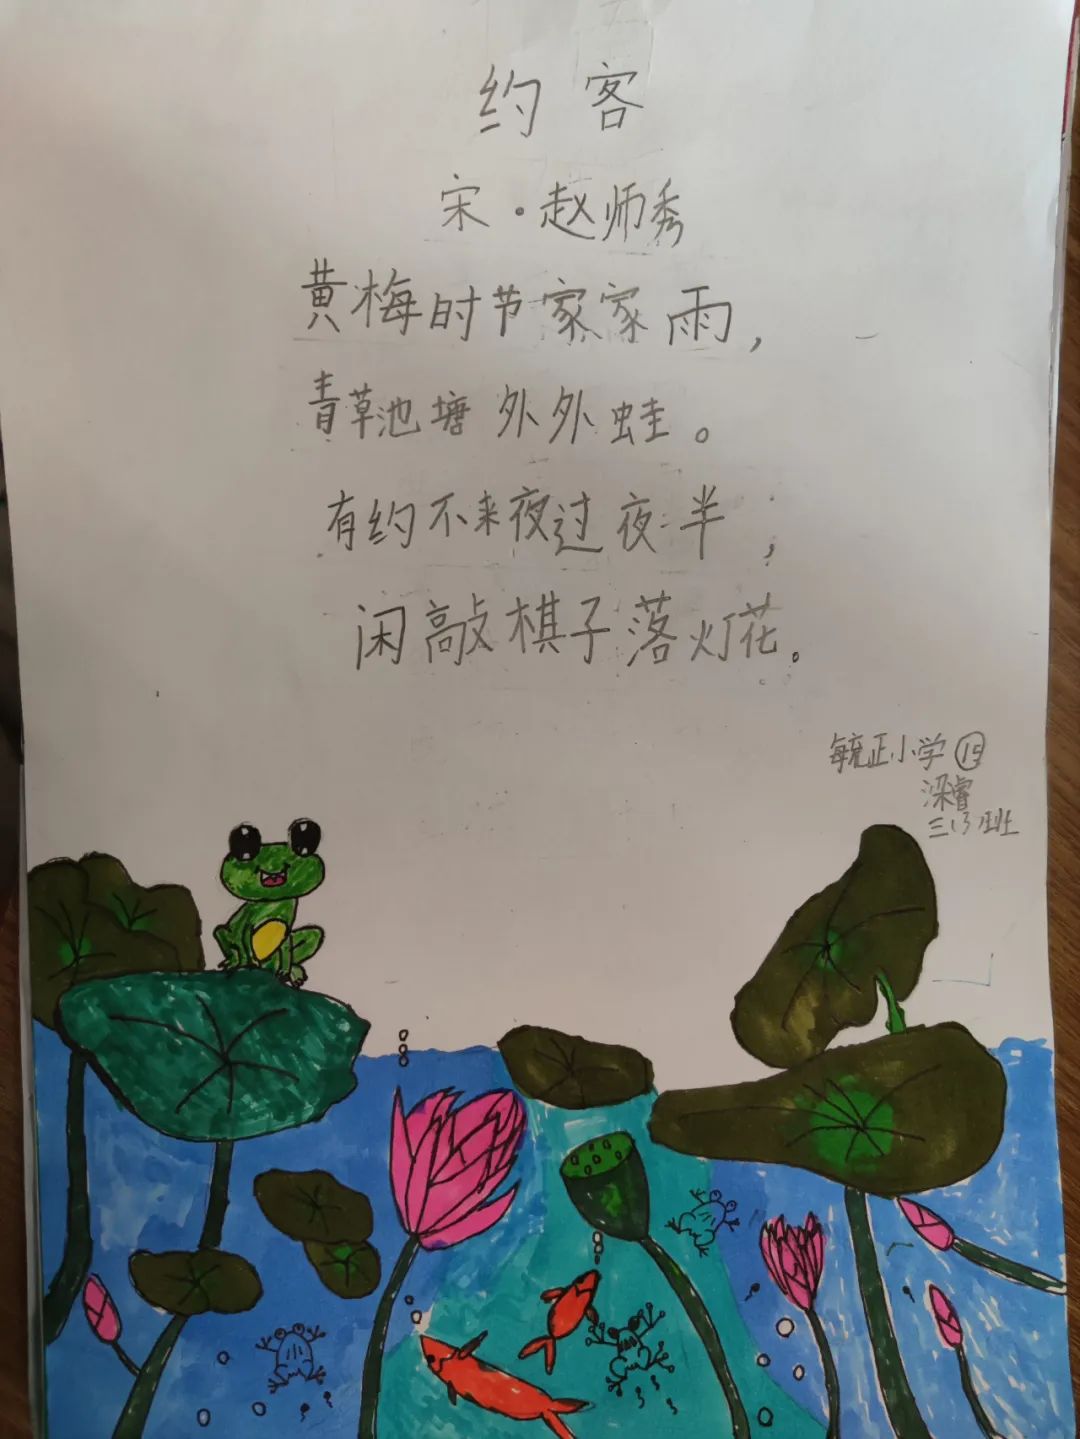 约客
宋·赵师秀
黄梅时节家家雨，
青草池塘外外蛙。
有约不来夜过夜半，
闲敲棋子落灯花。
毓正小学⑮
睿
三(3)班